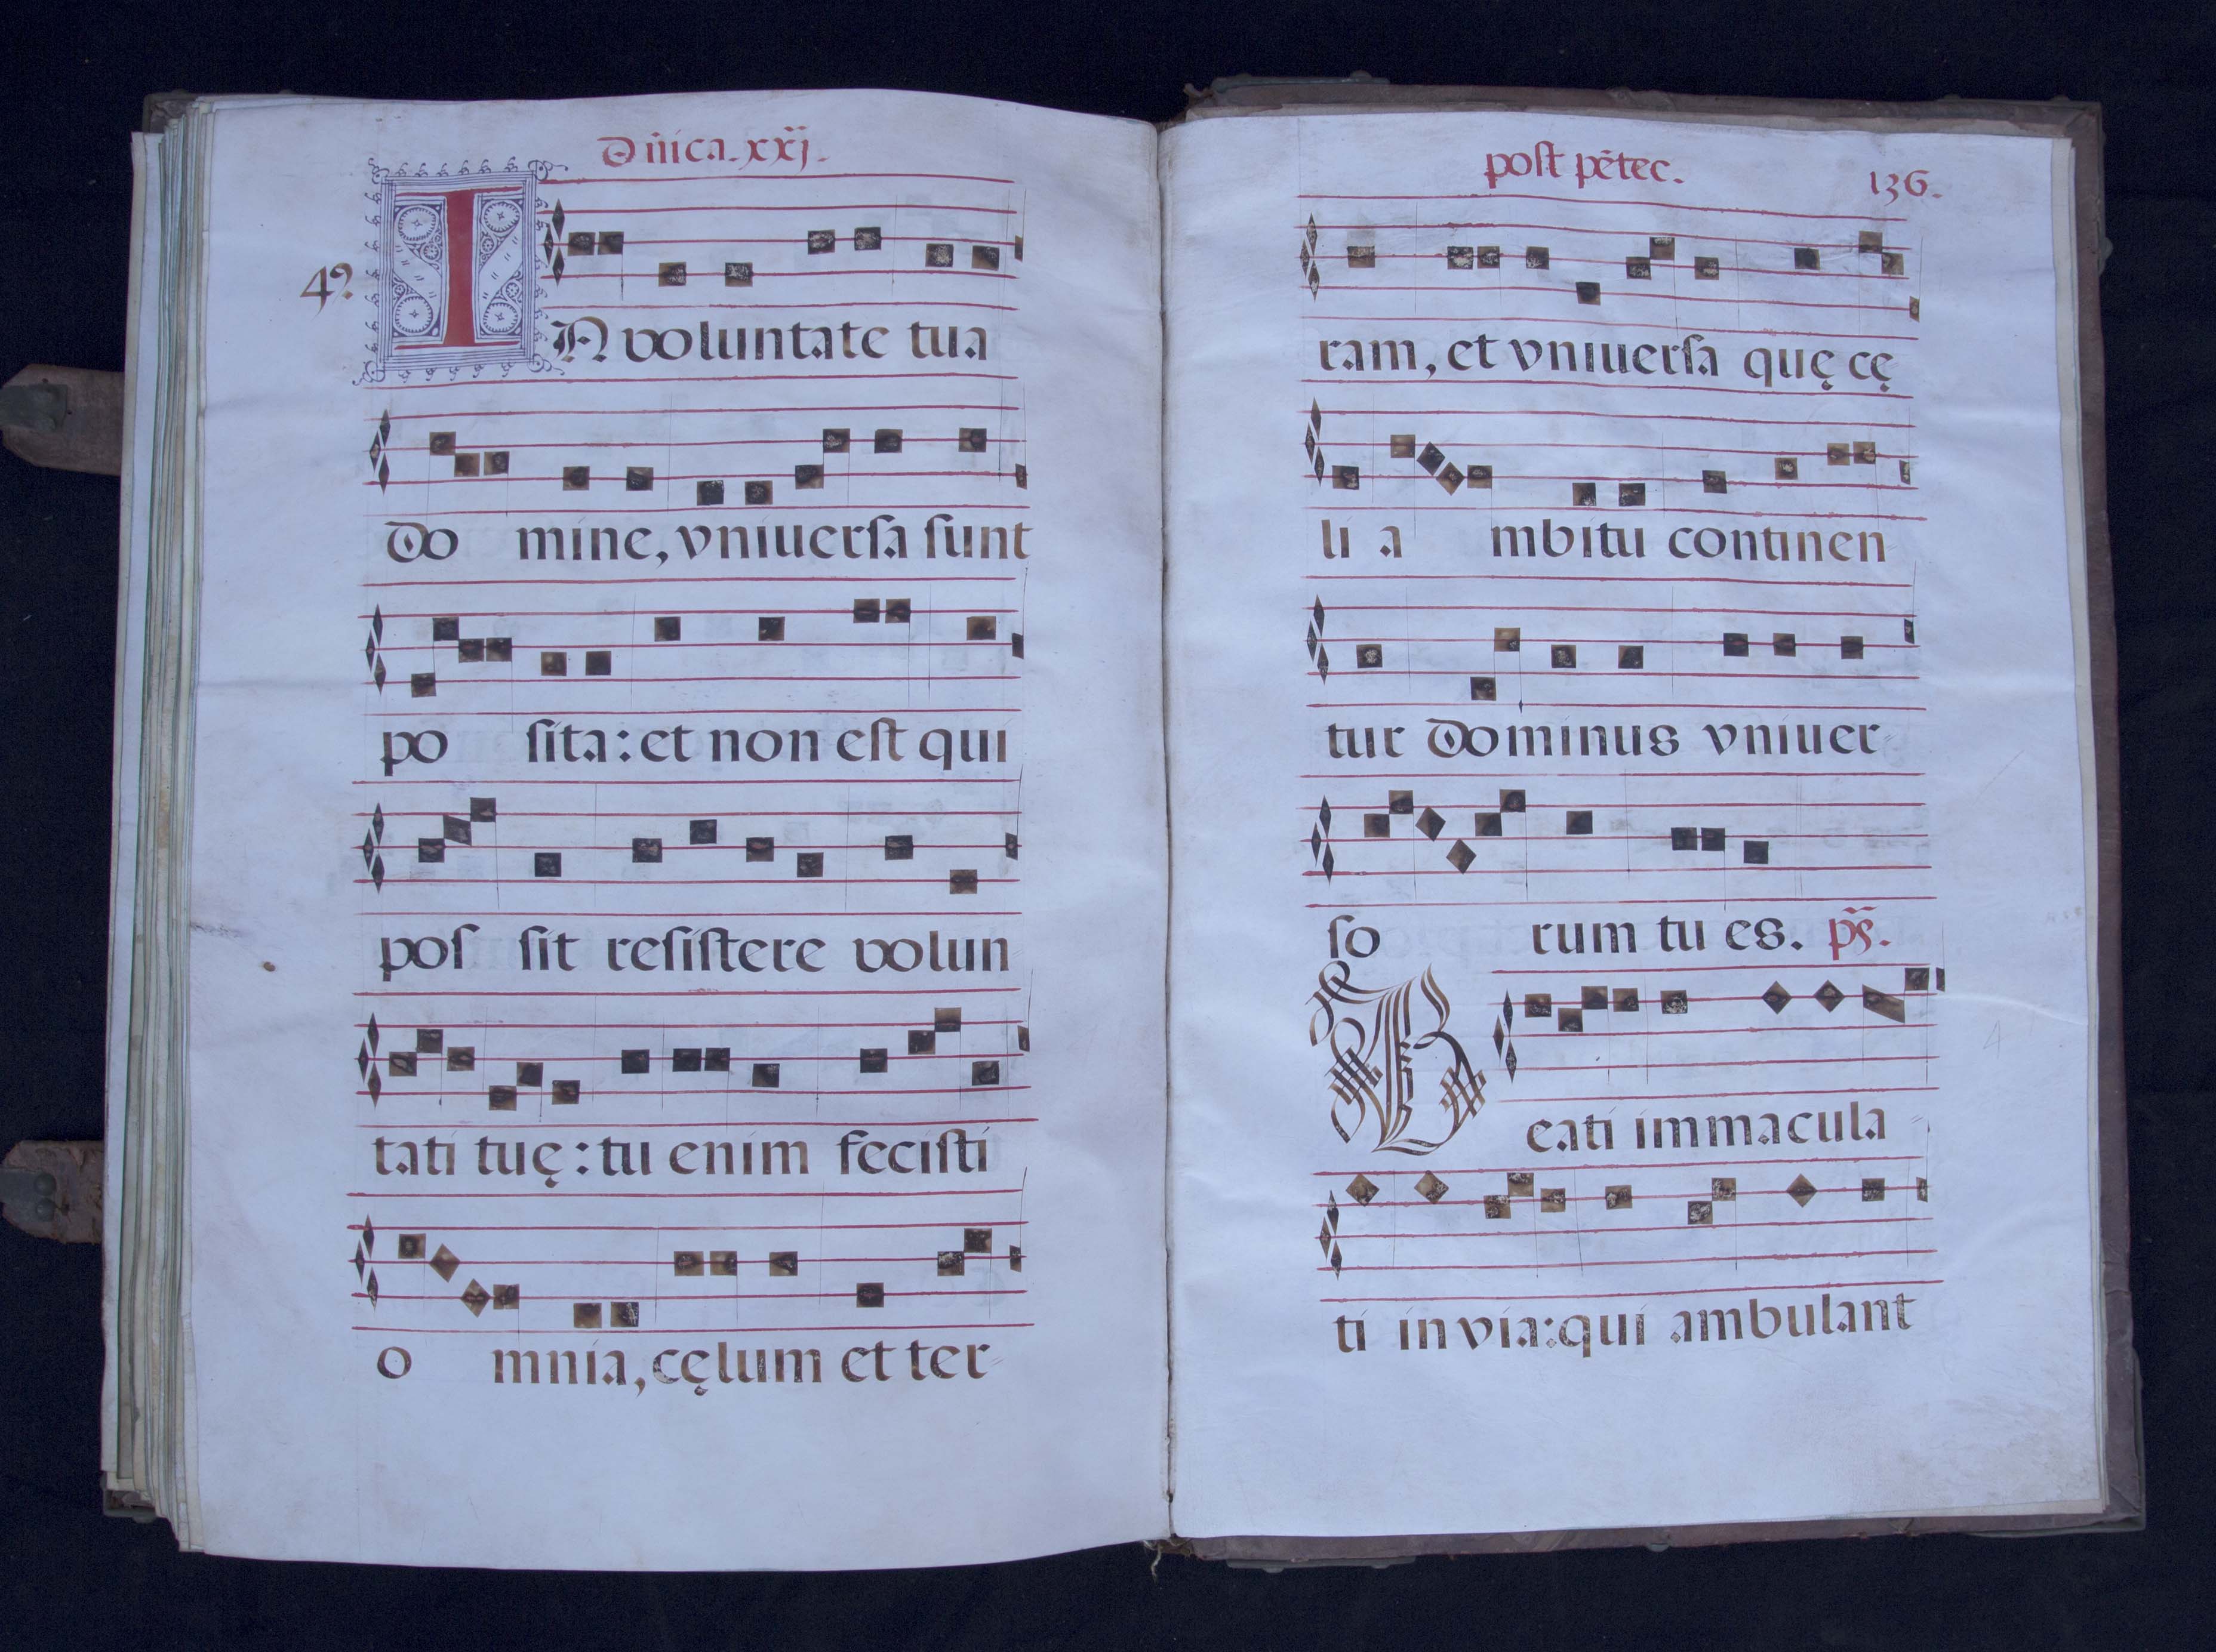 Dñica. xxj.
4º.
IN voluntate tua
Do mine, vniuerſa ſunt
po ſita: et non eſt qui
poſ ſit reſiſtere volun
tati tuę: tu enim feciſti
o mnia, cęlum et ter-
post pẽtec. 136.
ram, et vniuerſa quę cę
li a mbitu continen-
tur Dominus vniuer-
ſo rum tu es. pš.
Beati immacula-
ti in via: qui ambulant